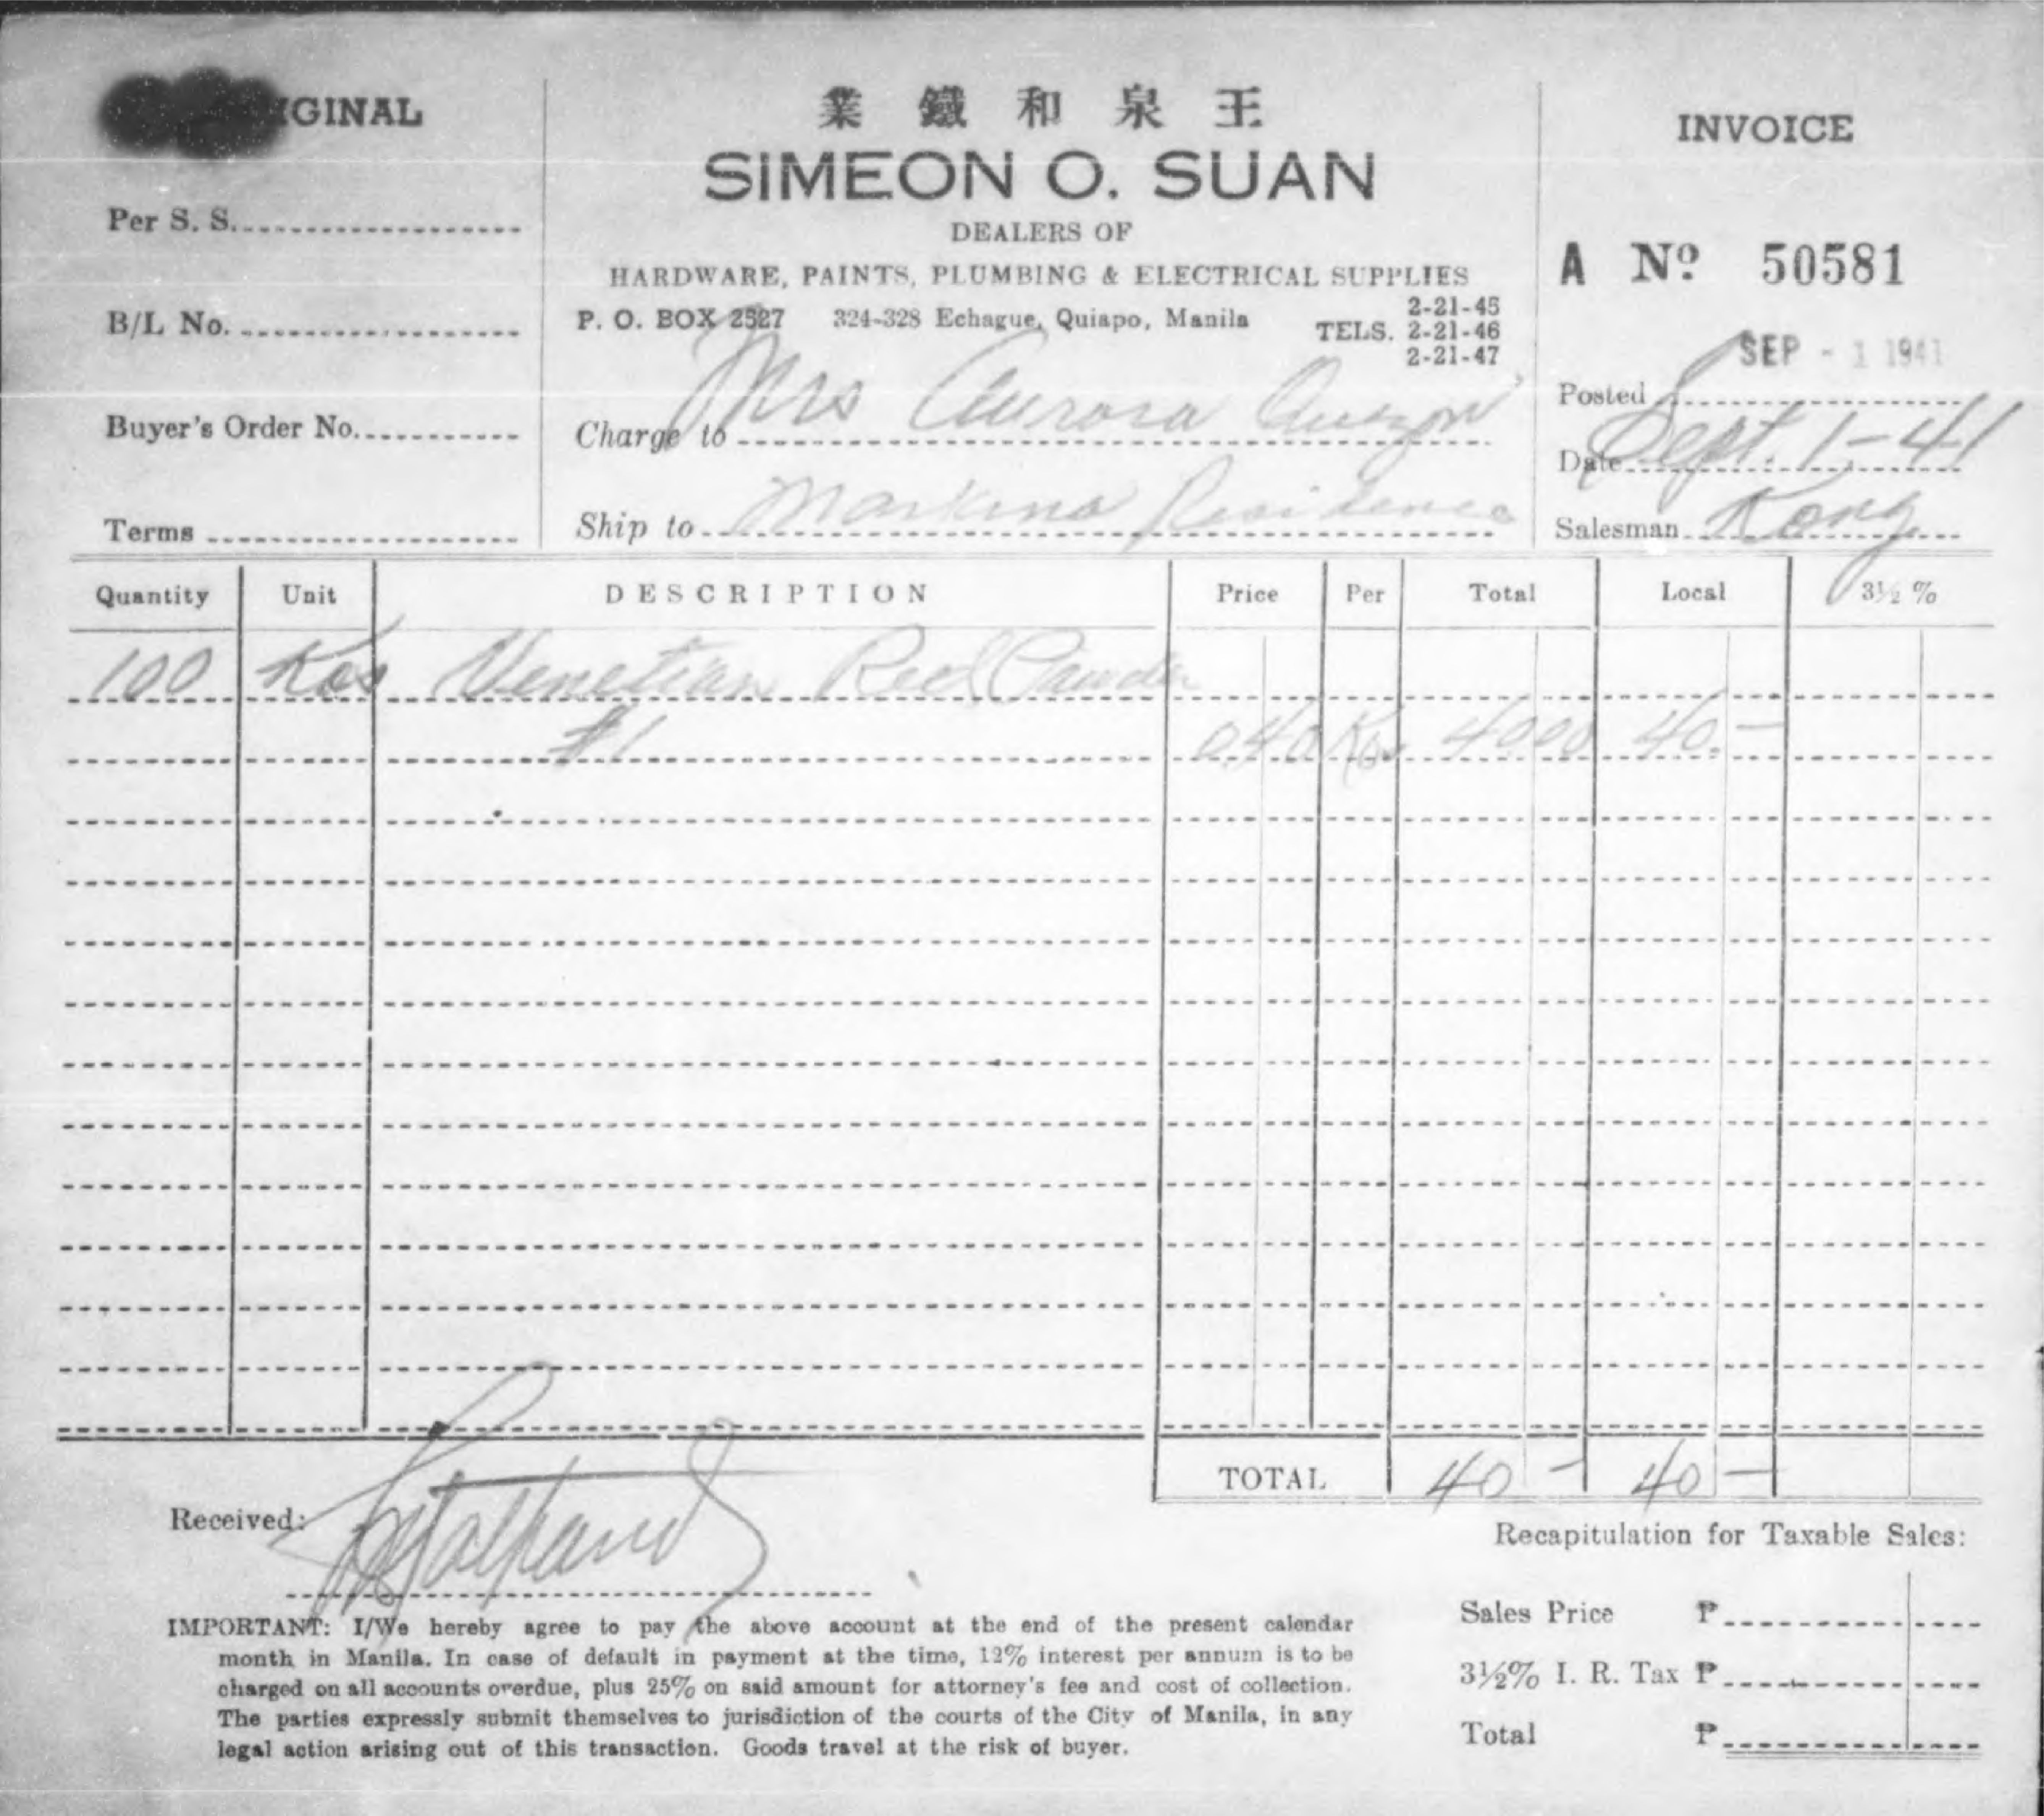 IGINAL
Per S. S.
B/L No.
Buyer's Order No.
Terms
業 鐵 和 泉 王
SIMEON O. SUAN
DEALERS OF
HARDWARE, PAINTS, PLUMBING & ELECTRICAL SUPPLIES
P. O. BOX 2527 324-328 Echague, Quiapo, Manila TELS. 2-21-45
2-21-46
2-21-47
Charge to Mrs Aurora Quezon
Ship to Marikina Residence
INVOICE
A Nº 50581
SEP - 1 1941
Posted
Date Sept. 1-41
Salesman Kong
Quantity Unit DESCRIPTION Price Per Total Local 3½ %
100 Kos Venetian Red Powder
#1 0.40 Kos 40.00 40.-
TOTAL 40 - 40 -
Received:
IMPORTANT: I/We hereby agree to pay the above account at the end of the present calendar
month in Manila. In case of default in payment at the time, 12% interest per annum is to be
charged on all accounts overdue, plus 25% on said amount for attorney's fee and cost of collection.
The parties expressly submit themselves to jurisdiction of the courts of the City of Manila, in any
legal action arising out of this transaction. Goods travel at the risk of buyer.
Recapitulation for Taxable Sales:
Sales Price ₱
3½% I. R. Tax ₱
Total ₱